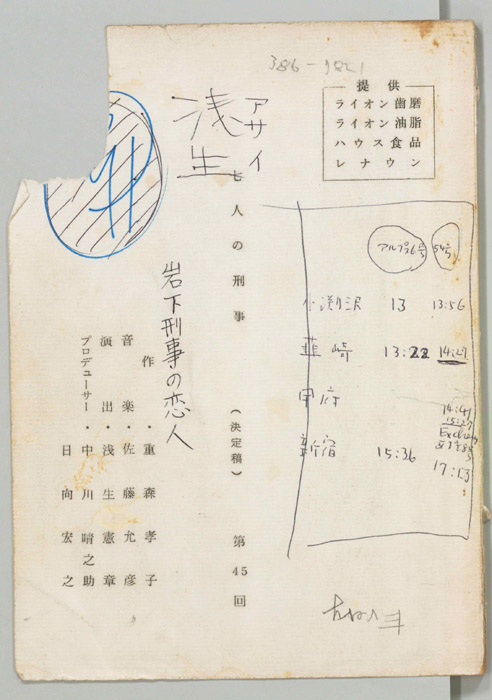 386-9821
提供
ライオン歯磨
ライオン油脂
ハウス食品
レナウン
アサイ
浅生
七人の刑事 (決定稿) 第45回
岩下刑事の恋人
作・重森孝子
音楽・佐藤允彦
演出・浅生憲章
プロデューサー・中川晴之助
日向宏之
アルプス6号 54号
小渕沢 13 13:56
韮崎 13:22 14:27
甲府
14:41
新宿 15:36 17:13